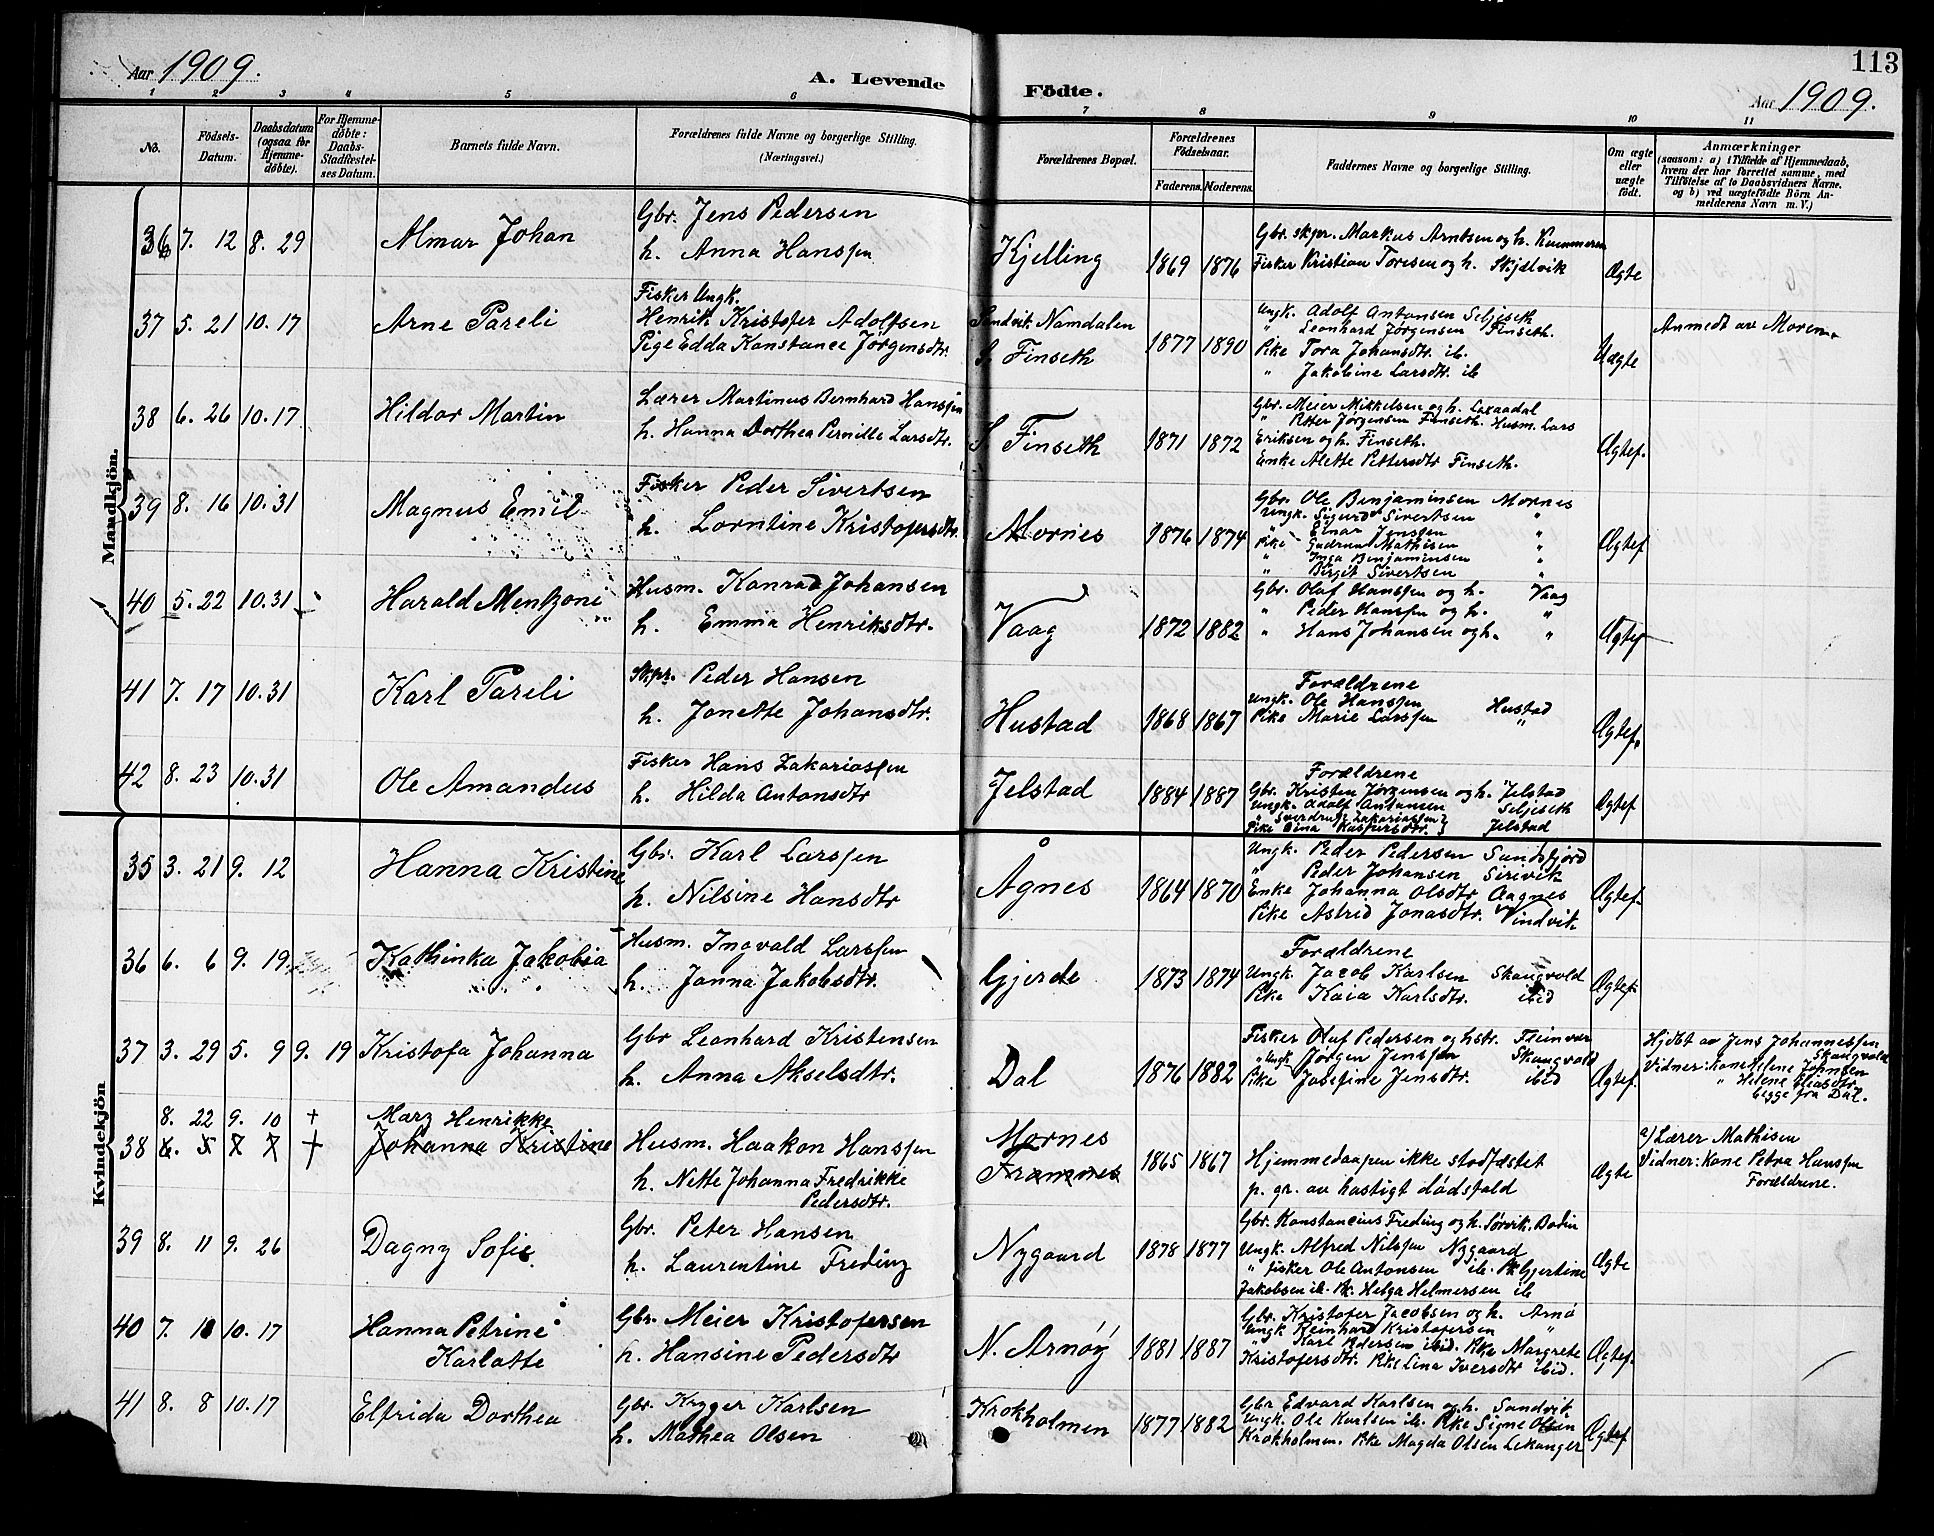 113
Aar 1909.
A. Levende Fødte.
Aar 1909.
1 2 3 4 5 6 7 8 9 10 11
No.
Fødsels-Datum.
Daabsdatum (ogsaa for Hjemme-døbte).
For Hjemme-døbte: Daabs-Stadfæstel-ses Datum.
Barnets fulde Navn.
Forældrenes fulde Navne og borgerlige Stilling. (Næringsvei.)
Forældrenes Bopæl.
Forældrenes Fødselsaar.
Faderens. Moderens.
Faddernes Navne og borgerlige Stilling.
Om ægte eller uægte født.
Anmærkninger
(saasom: a) i Tilfælde af Hjemmedaab,
hvem der har forrettet samme, med
Tilføielse af to Daabsvidners Navne,
og b) ved uægtefødte Børn An-
melderens Navn m. V.)
Mandkjön.
36 7. 12 8. 29 Almar Johan
Gbr. Jens Pedersen
h. Anna Hanssen
Kjelling 1869 1876
Gbr. skpr. Markus Arntsen og h.
Fisker Kristian Toresen og h. Skjelvik
Ægte
37 5. 21 10. 17 Arne Pareli
Fisker Ungk.
Henrik Kristofer Adolfsen
Pige Edda Konstance Jørgensdtr.
Sandvik Namdalen
S. Finseth 1877 1890
Ungk. Adolf Antonsen Seljeseth
" Leonhard Jørgensen Finseth.
Pike Tora Johansdtr. ib.
" Jakobine Larsdtr. ib
Uægte
Anmedt av Moren.
38 6. 26 10. 17 Hildor Martin
Lærer Martinus Bernhard Hanssen
h. Hanna Dorthea Pernille Larsdtr.
S. Finseth 1871 1872
Gbr. Meier Mikkelsen og h. Laxaadal
" Petter Jørgensen Finseth. Husm. Lars
Eriksen og h. Finseth.
Enke Alette Pettersdtr Finseth.
Ægtef.
39 8. 16 10. 31 Magnus Emil
Fisker Peder Sivertsen
h. Lorntine Kristofersdtr.
Mornes 1876 1874
Gbr. Ole Benjaminsen Mornes
Ungk. Sigurd Sivertsen "
" Einar Jenssen "
Pike Gudrun Mathisen "
" Inga Benjaminsen "
" Birgit Sivertsen "
Ægtef
40 5. 22 10. 31 Harald Mentzoni
Husm. Konrad Johansen
h. Emma Henriksdtr.
Vaag 1872 1882
Gbr. Olaf Hanssen og h. Vaag
" Peder Hanssen og h. "
" Hans Johansen og h. "
Ægtef
41 7. 17 10. 31 Karl Pareli
Skpr. Peder Hansen
h. Jonette Johansdtr.
Hustad 1868 1867
Forældrene
Ungk. Ole Hanssen Hustad
Pike Marie Larssen "
Ægtef.
42 8. 23 10. 31 Ole Amandus
Fisker Hans Zakariassen
h. Hilda Antonsdtr
Jelstad 1884 1887
Forældrene
Gbr. Kristen Jørgensen og h. Jelstad
Ungk. Adolf Antonsen Seljeseth
" Sverdrup Zakariassen
Pike Dina Kaspersdtr. Jelstad
Ægtef
Kvindekjön
35 3. 21 9. 12 Hanna Kristine
Gbr. Karl Larssen
h. Nilsine Hansdtr
Ågnes 1864 1870
Ungk. Peder Pedersen Sundsfjord
" Peder Johansen Sirivik
Enke Johanna Olsdtr Aagnes
Pike Astrid Jonasdtr. Vindvik
Ægtef.
36 6. 6 9. 19 Kathinka Jakobia
Husm. Ingvald Larssen
h. Janna Jakobsdtr.
Gjerde 1873 1874
Forældrene
Ungk. Jacob Karlsen Skaugvold
Pike Kaia Karlsdtr. ibid
Ægtef.
37 3. 29 5. 9 9. 19 Kristofa Johanna
Gbr Leonhard Kristensen
h. Anna Akselsdtr.
Dal 1876 1882
Fisker Oluf Pedersen og hstr. Fleinvær
" Ungk Jørgen Jenssen Skaugvold
Pike Josefine Jensdtr. ibid
Ægtef.
Hjdbt av Jens Johannessen
Skaugvold
Vidner: Kone Helene Johnsen
" Helene Eliasdtr.
begge fra Dal.
8. 22 9. 10 + Mary Henrikke
38 6. 5 + Johanna Kristine
Husm. Haakon Hanssen
h. Nette Johanna Fredrikke
Pedersdtr.
Mornes
Framnes 1865 1867
Hjemmedaapen ikke stadfæstet
p. gr. av hastigt dødsfald
Ægte
a) Lærer Mathisen
Vidner: Kone Petra Hanssen
Forældrene.
39 8. 11 9. 26 Dagny Sofie
Gbr. Peter Hansen
h. Laurentine Freding
Nygaard 1878 1877
Gbr. Konstancius Freding og h. Sørvik. Bodin
Ungk. Alfred Nilssen Nygaard
" fisker Ole Antonsen ib. Pk Gjertine
Jakobsen ib. Pk. Helga Helmersen ib
Ægte
40 7. 10 10. 17 Hanna Petrine
Karlotte
Gbr. Meier Kristofersen
h. Hansine Pedersdtr
N. Arnøy 1881 1887
Gbr. Kristofer Jacobsen og h. Arnø
Ungk Reinhard Kristofersen "
" Karl Pedersen ibid. Pike Margrete
Kristofersdtr. Pike Lina Iversdtr ibid.
Ægtef.
41 8. 8 10. 17 Elfrida Dorthea
Gbr. Kryger Karlsen
h. Mathea Olsen
Krokholmen 1877 1882
Gbr Edvard Karlsen og h. Sandvik
Ungk. Ole Karlsen ib. Pike Signe Olsen
Krokholmen. Pike Magda Olsen Lekanger
Ægtef